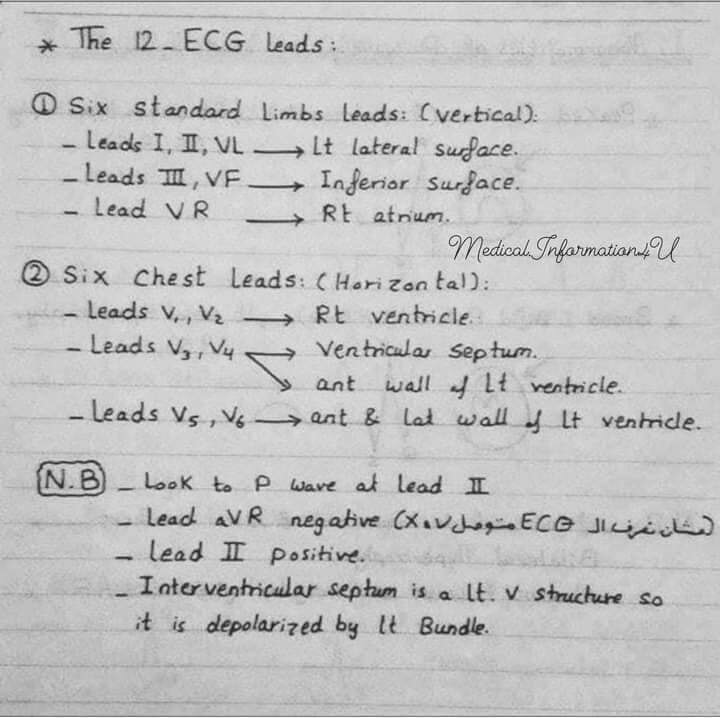 * The 12_ECG Leads:
① Six standard Limbs leads: (vertical):
- Leads I, II, VL → Lt lateral surface.
- Leads III, VF → Inferior surface.
- Lead VR → Rt atrium.
Medical.Information4U
② Six Chest Leads: (Horizontal):
- Leads V₁, V₂ → Rt ventricle.
- Leads V₃, V₄ → Ventricular septum.
→ ant wall of Lt ventricle.
- Leads V₅, V₆ → ant & lat wall of Lt ventricle.
N.B - Look to P wave at lead II
- Lead aVR negative (عشان نعرف ال ECG متوصل ✓ or X)
- lead II positive.
- Interventricular septum is a lt. v structure so
it is depolarized by lt Bundle.